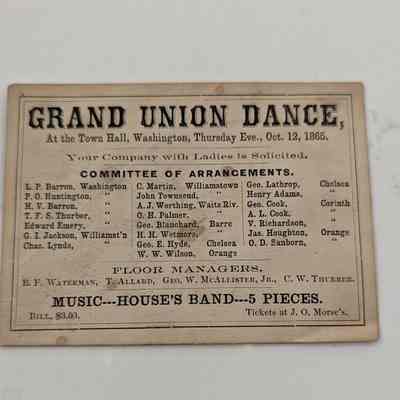 GRAND UNION DANCE,
At the Town Hall, Washington, Thursday Eve., Oct. 12, 1865.
Your Company with Ladies is Solicited.
COMMITTEE OF ARRANGEMENTS.
L. P. Barron, Washington C. Martin, Williamstown Geo. Lathrop, Chelsea
P. O. Huntington, " John Townsend, " Henry Adams, "
H. V. Barron, " A. J. Worthing, Waits Riv. Geo. Cook, Corinth
T. F. S. Thurber, " O. H. Palmer, " A. L. Cook, "
Edward Emery, " Geo. Blanchard, Barre V. Richardson, "
G. I. Jackson, Williamst'n H. H. Wetmore, " Jas. Houghton, Orange
Chas. Lynds, " Geo. E. Hyde, Chelsea O. D. Sanborn, "
W. W. Wilson, Orange
FLOOR MANAGERS.
B. F. WATERMAN, T. ALLARD, GEO. W. MCALLISTER, JR., C. W. THURBER.
MUSIC---HOUSE'S BAND---5 PIECES.
BILL, $3.00. Tickets at J. O. Morse's.